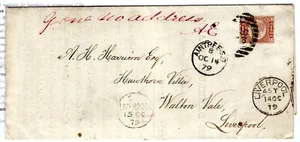 Gone no address
AINTREE
B
OC 14
79
A. H. Harrison Esq.,
Hawthorn Villa,
Walton Vale,
Liverpool.
LIVERPOOL
14 OC
79
15 OC
79